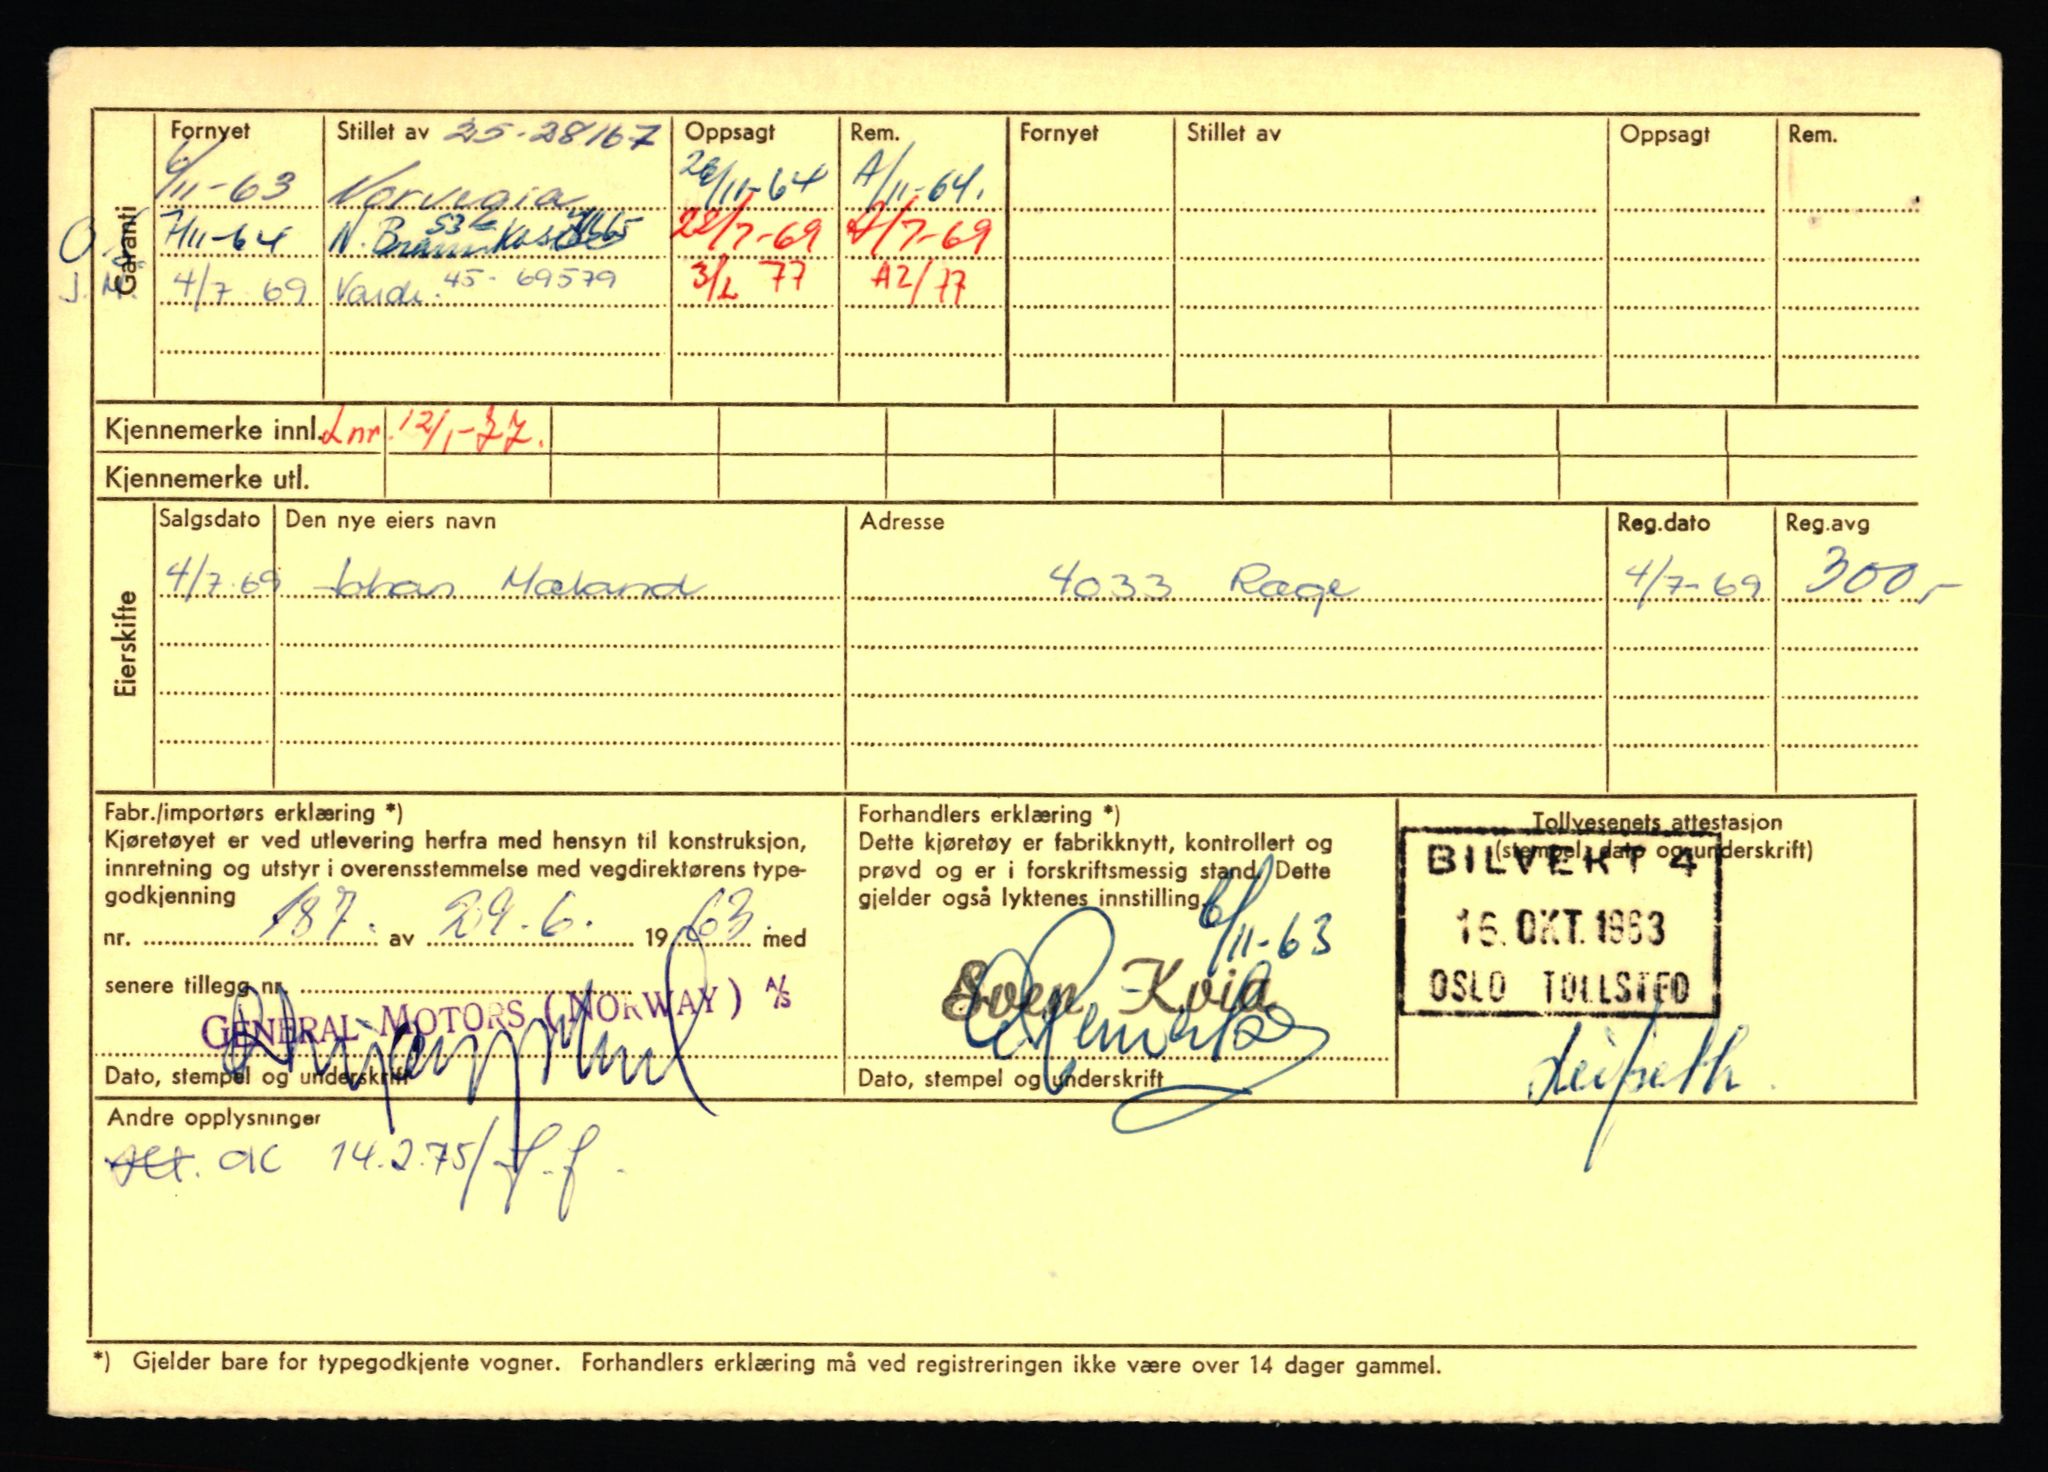 Garanti
Fornyet Stillet av 25-28167 Oppsagt Rem. Fornyet Stillet av Oppsagt Rem.
6/11-63 Norvegia /11-64 A/11-64.
7/11-64 N. 22/7-69 A/7-69
4/7 69 45-69579 3/2 77 A2/77
Kjennemerke innl. Lnr. 12/1-77.
Kjennemerke utl.
Eierskifte
Salgsdato Den nye eiers navn Adresse Reg.dato Reg.avg
4/7-69 Johan Mæland 4033 Ræge 4/7-69 300,-
Fabr./importørs erklæring *)
Kjøretøyet er ved utlevering herfra med hensyn til konstruksjon,
innretning og utstyr i overensstemmelse med vegdirektørens type-
godkjenning
nr. 187. av 29.6. 1963. med
senere tillegg nr.
GENERAL MOTORS (NORWAY) A/S
Dato, stempel og underskrift
Forhandlers erklæring *)
Dette kjøretøy er fabrikknytt, kontrollert og
prøvd og er i forskriftsmessig stand. Dette
gjelder også lyktenes innstilling.
6/11-63
Sven Kvia
Dato, stempel og underskrift
Tollvesenets attestasjon
(stempel, dato og underskrift)
BILVEKT 4
16. OKT. 1963
OSLO TOLLSTED
Andre opplysninger
OK 14.2.75/
*) Gjelder bare for typegodkjente vogner. Forhandlers erklæring må ved registreringen ikke være over 14 dager gammel.